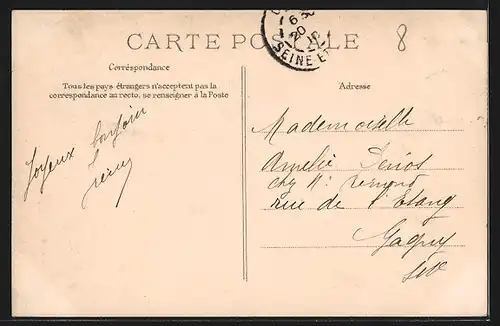 CARTE POSTALE
8
6
20
SEINE-ET
Correspondance
Tous les pays étrangers n'acceptent pas la
correspondance au recto, se renseigner à la Poste
Joyeux
Adresse
Mademoiselle
Amélie
chez Mr
rue de l'Etang
Gagny
S et O